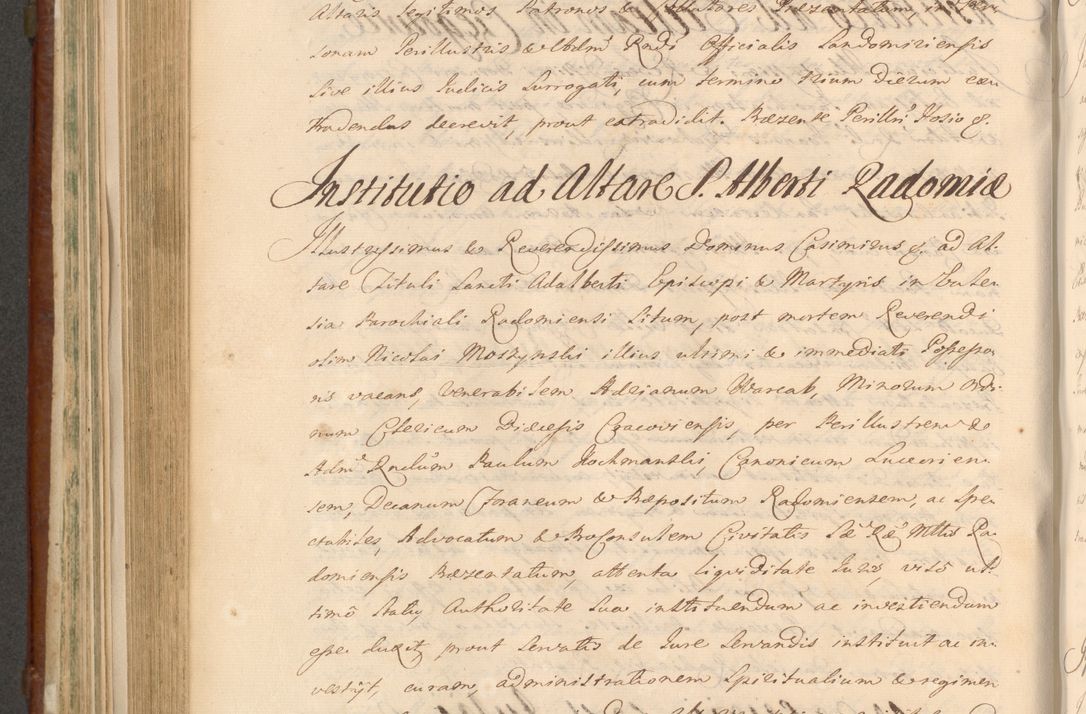 Altaris legitimos Patronos & Collatores Præzentatum, in Per-
sonam Perillustris & Adm Rndi Officialis Sandomiriensis
sive illius Judicis Surrogati, cum termino trium dierum eam
tradendas decrevit, prout extradidit. Præzente Perillri Hosio &.
Institutio ad Altare S. Alberti Radomiæ
Illustrissimus & Reverendissimus Dominus Casimirus &. ad Al-
tare Tituli Sancti Adalberti Episcopi & Martyris in Eccle-
sia Parochiali Radomiensi situm, post mortem Reverendi
olim Nicolai Moszynski illius ultimi & immediati Possesso-
ris vacans, Venerabilem Adrianum Warcab, Minorum Ordi-
num Clericum Diæcesis Cracoviensis, per Perillustrem &
Admm Rndum Paulum Kochmanski, Canonicum Luceorien-
sem, Decanum Foraneum & Præpositum Radomiensem, ac Spe-
ctabiles, Advocatum & Proconsulem Civitatis Sæ Ræ Mttis Ra-
domiensis Præzentatum, attenta liqviditate Juris, visô ul-
timô statu, Authoritate Sua instituendum ac investiendum
esse duxit, prout servatis de Jure servandis instituit ac in-
vestijt, curam, administrationem Spiritualium & regimen